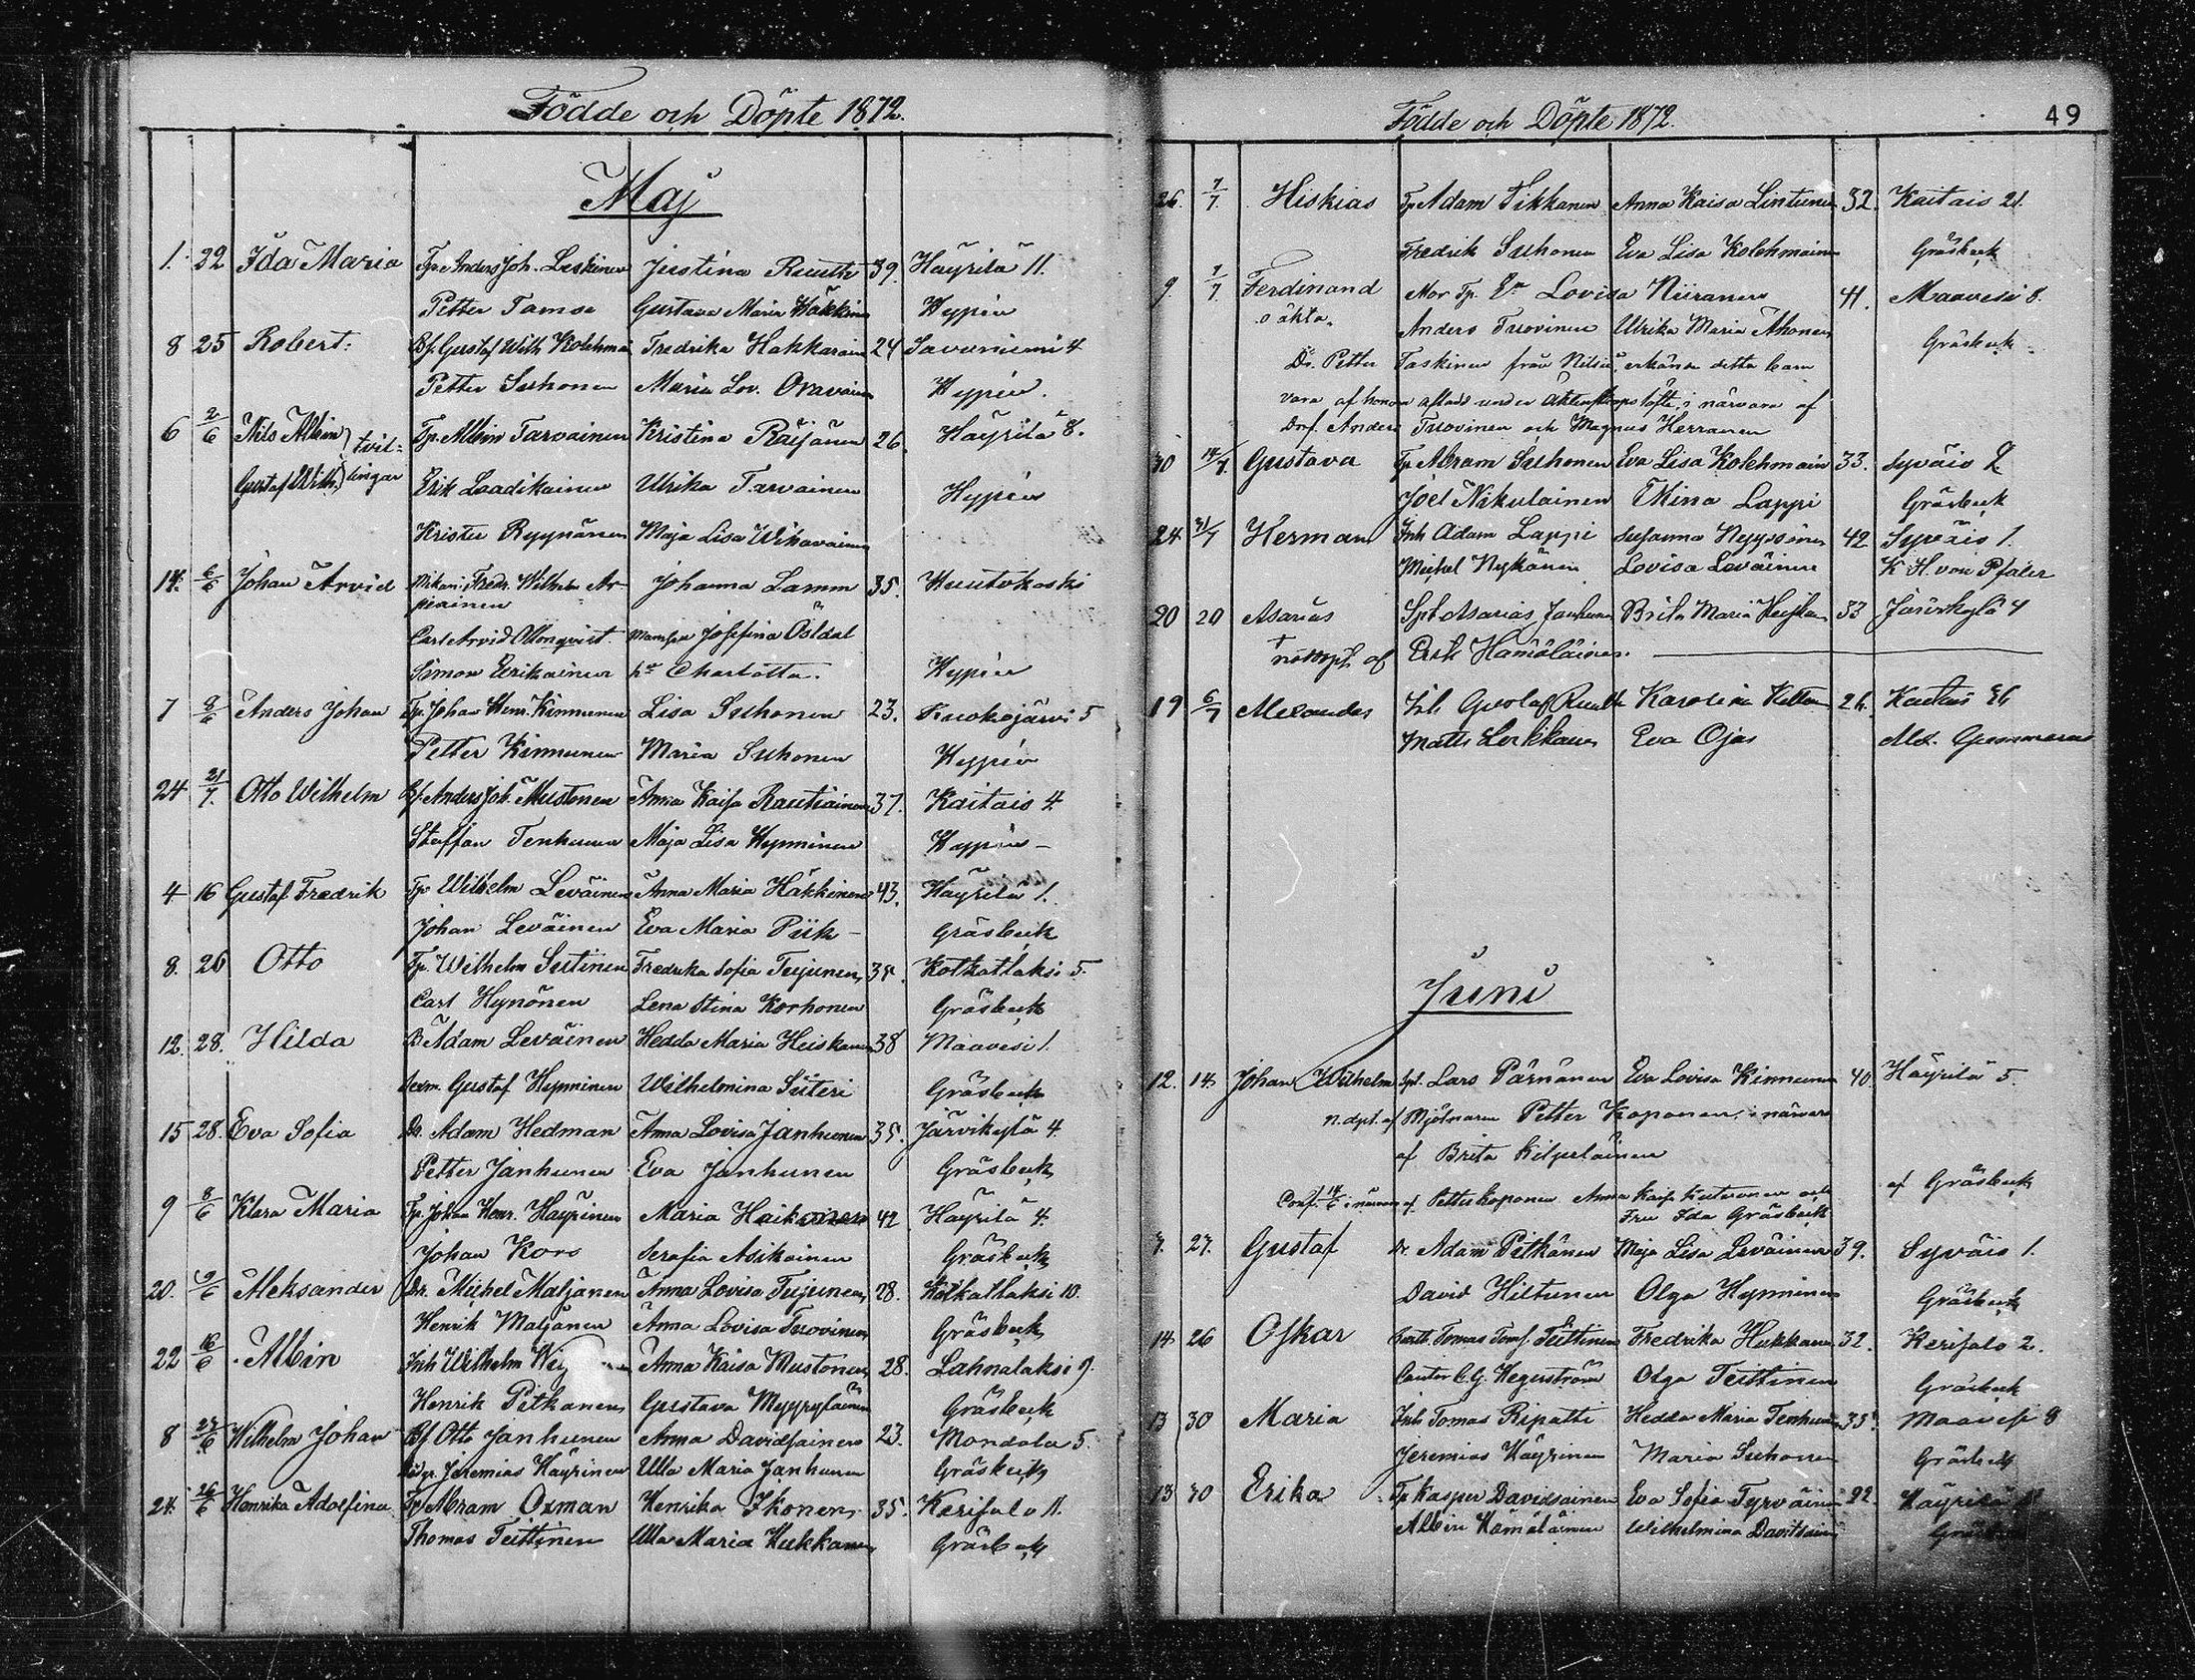 Födde och Döpte 1872.
Maj
1. 22 Ida Maria Tp. Anders Joh. Leskinen Justina Ruuth 39. Häyrilä 11.
Petter Tamse Gustava Maria Häkkinen Hypén
8 25 Robert. Bf. Gustaf Wilh Kolehmai Fredrika Hakkarain 24 Savuniemi 4
Petter Suhonen Maria Lov. Oravain Hypén.
6 2/6 Nils Albin tvil- Tp. Albin Tarvainen Kristina Räisänen 26. Häyrilä 8.
Gustaf Wilh. lingar Erik Laadikainen Ulrika Tarvainen Hypén
Krister Ryynänen Maja Lisa Wihavainen
14. 6/6 Johan Arvid Fredr. Wilhelm Ar- Johanna Lamm 35. Huutokoski
piainen
Carl Arvid Mamsn Josefina Ösldal
Simon Eerikainen Charlotta. Hypén
7 8/6 Anders Johan Tp. Johan Henr. Kinnunen Lisa Suhonen 23. Kuokojärvi 5
Petter Kinnunen Maria Suhonen Hypén
24 21/7. Otto Wilhelm Bf. Anders Joh. Mustonen Anna Kaisa Rautiainen 37. Kaitais 4.
Staffan Tenhunen Maja Lisa Hynninen Hypén
4 16 Gustaf Fredrik Tp Wilhelm Leväinen Anna Maria Häkkinen 43. Häyrilä 1.
Johan Leväinen Eva Maria Piik Gräsbeck
8. 26 Otto Tp. Wilhelm Sutinen Fredrika Sofia Teijunen 34. Kotkatlaksi 5.
Carl Hynönen Lena Stina Korhonen Gräsbeck
12. 28. Hilda B Adam Leväinen Hedda Maria Heiskanen 38 Maavesi 1.
Gustaf Hynninen Wilhelmina Siiteri Gräsbeck
15 28. Eva Sofia Dr. Adam Hedman Anna Lovisa Janhunen 35. Järvikylä 4.
Petter Janhunen Eva Janhunen Gräsbeck
9 8/6 Klara Maria Tp. Johan Henr. Häyrinen Maria Haikarainen 42 Häyrilä 4.
Johan Koro Serafia Asikainen Gräsbeck
20. 9/6 Aleksander Dr. Michel Maljanen Anna Lovisa Teijunen 28. Kotkatlaksi 10.
Henrik Maljanen Anna Lovisa Tuovinen Gräsbeck
22 16/6 Albin Inh Wilhelm Anna Kaisa Mustonen 28. Lahnalaksi 9.
Henrik Pitkänen Gustava Myyryläinen Gräsbeck
8 24/6 Wilhelm Johan Bf Otto Janhunen Anna Davidsainen 23. Mondola 5.
Jeremias Häyrinen Ulla Maria Janhunen Gräsbeck
24. 26/6 Henrika Adolfina Tp Abram Oxman Henrika Ikonen 35. Kerisalo 11.
Thomas Teittinen Ulla Maria Hukkanen Gräsbeck
Födde och Döpte 1872.
49
26. 7/7. Hiskias Tp Adam Tikkanen Anna Kaisa Lintunen 32. Kaitais 21.
Fredrik Suhonen Eva Lisa Kolehmainen Gräsbeck
9. 7/7. Ferdinand Mor Tp. Ea Lovisa Niiranen 41. Maavesi 8.
o äkta. Anders Tuovinen Ulrika Maria Ahonen Gräsbeck
Dr. Petter Taskinen från Nilsiä, erkände detta barn
vara af honom aflad under äktenskapslöfte, i närvaro af
Anders Tuovinen och Magnus Herranen
30 14/7. Gustava Tp Abram Suhonen Eva Lisa Kolehmain 33. Syväis 2
Joel Nikulainen Mina Lappi Gräsbeck
24 21/7 Herman Inh Adam Lappi Susanna Nyyssönen 42 Syväis 1.
Michel Nykänen Lovisa Leväinen K. H. von Pfaler
20 20 Asarias Spt Asarias Janhunen Brita Maria 33 Järvikylä 4
nöddpt. af Erik Hämäläinen.
19 6/7 Alexander Inh Gustaf Ruuth Karolina 26. Kaitais
Matts Lorkkanen Eva Ojas
Juni
12. 14. Johan Wilhelm Spt. Lars Pärnänen Eva Lovisa Kinnunen 40 Häyrilä 5.
n.dpt. af Mjölnaren Petter Koponen, i närvaro
af Brita Kilpeläinen
Conf. 14/6 i närvaro af Petter Koponen Anna Kaisa och af Gräsbeck
Fru Ida Gräsbeck
7. 27. Gustaf Dr. Adam Pitkänen Maja Lisa Leväinen 39. Syväis 1.
David Hiltunen Olga Hynninen Gräsbeck
14. 26 Oskar Tomas Tomf. Teittinen Fredrika Hukkanen 32. Kerisalo 2.
Cantor C. G. Hegerström Olga Teittinen Gräsbeck
13 30 Maria Inh Tomas Ripatti Hedda Maria Tenhunen 35. Maavesi 8
Jeremias Häyrinen Maria Suhonen Gräsbeck
13 30 Erika Tp Kasper Davidsainen Eva Sofia Tyrväinen 22. Häyrilä
Albin Hämäläinen Wilhelmina Davidsainen Gräsbeck